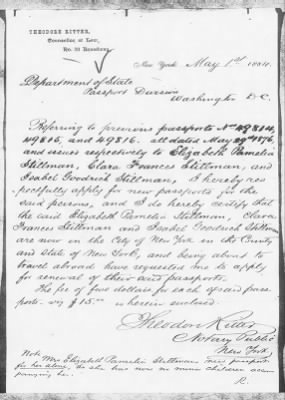 THEODORE RITTER,
Counsellor at Law,
No. 20 Broadway
New York May 1st 1880.
Department of State
Passport Division
Washington D.C.
Referring to previous passports Nos 49814,
49815, and 49816. all dated May 29th 1876,
and issued respectively to Elizabeth Pamelia
Stillman, Clara Frances Stillman, and
Isabel Goodrich Stillman, I hereby res-
pectfully apply for new passports for the
said persons, and I do hereby certify that
the said Elizabeth Pamelia Stillman, Clara
Frances Stillman and Isabel Goodrich Stillman
are now in the City of New York in the County
and State of New York, and being about to
travel abroad have requested me to apply
for renewal of their said passports.
The fee of five dollars for each of said pass-
ports. viz $15.00 is herein enclosed.
Theodore Ritter
Notary Public
New York
Note Mrs Elizabeth Pamelia Stillman's new passport
for her alone. As she has now no minor children accom
panying her. R.